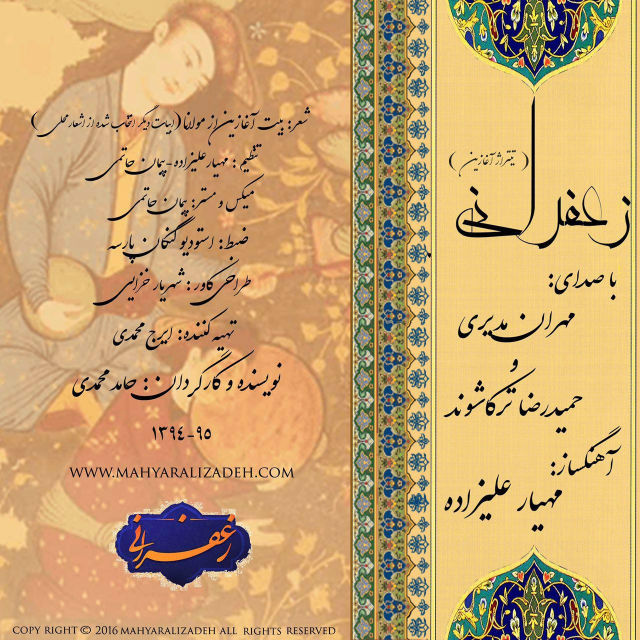 ( تیتراژ آغازین )
زعفرانی
با صدای:
مهران مدیری
و
حمیدرضا ترکاشوند
آهنگساز:
مهیار علیزاده
شعر: بیت آغازین از مولانا (ابیات دیگر انتخاب شده از اشعار محلی)
تنظیم : مهیار علیزاده - پیمان حاتمی
میکس و مستر: پیمان حاتمی
ضبط: استودیو گنگان پارسه
طراحی کاور : شهریار خزایی
تهیه کننده: ایرج محمدی
نویسنده و کارگردان : حامد محمدی
۱۳۹۴-۹۵
WWW.MAHYARALIZADEH.COM
زعفرانی
COPY RIGHT © 2016 MAHYARALIZADEH ALL RIGHTS RESERVED